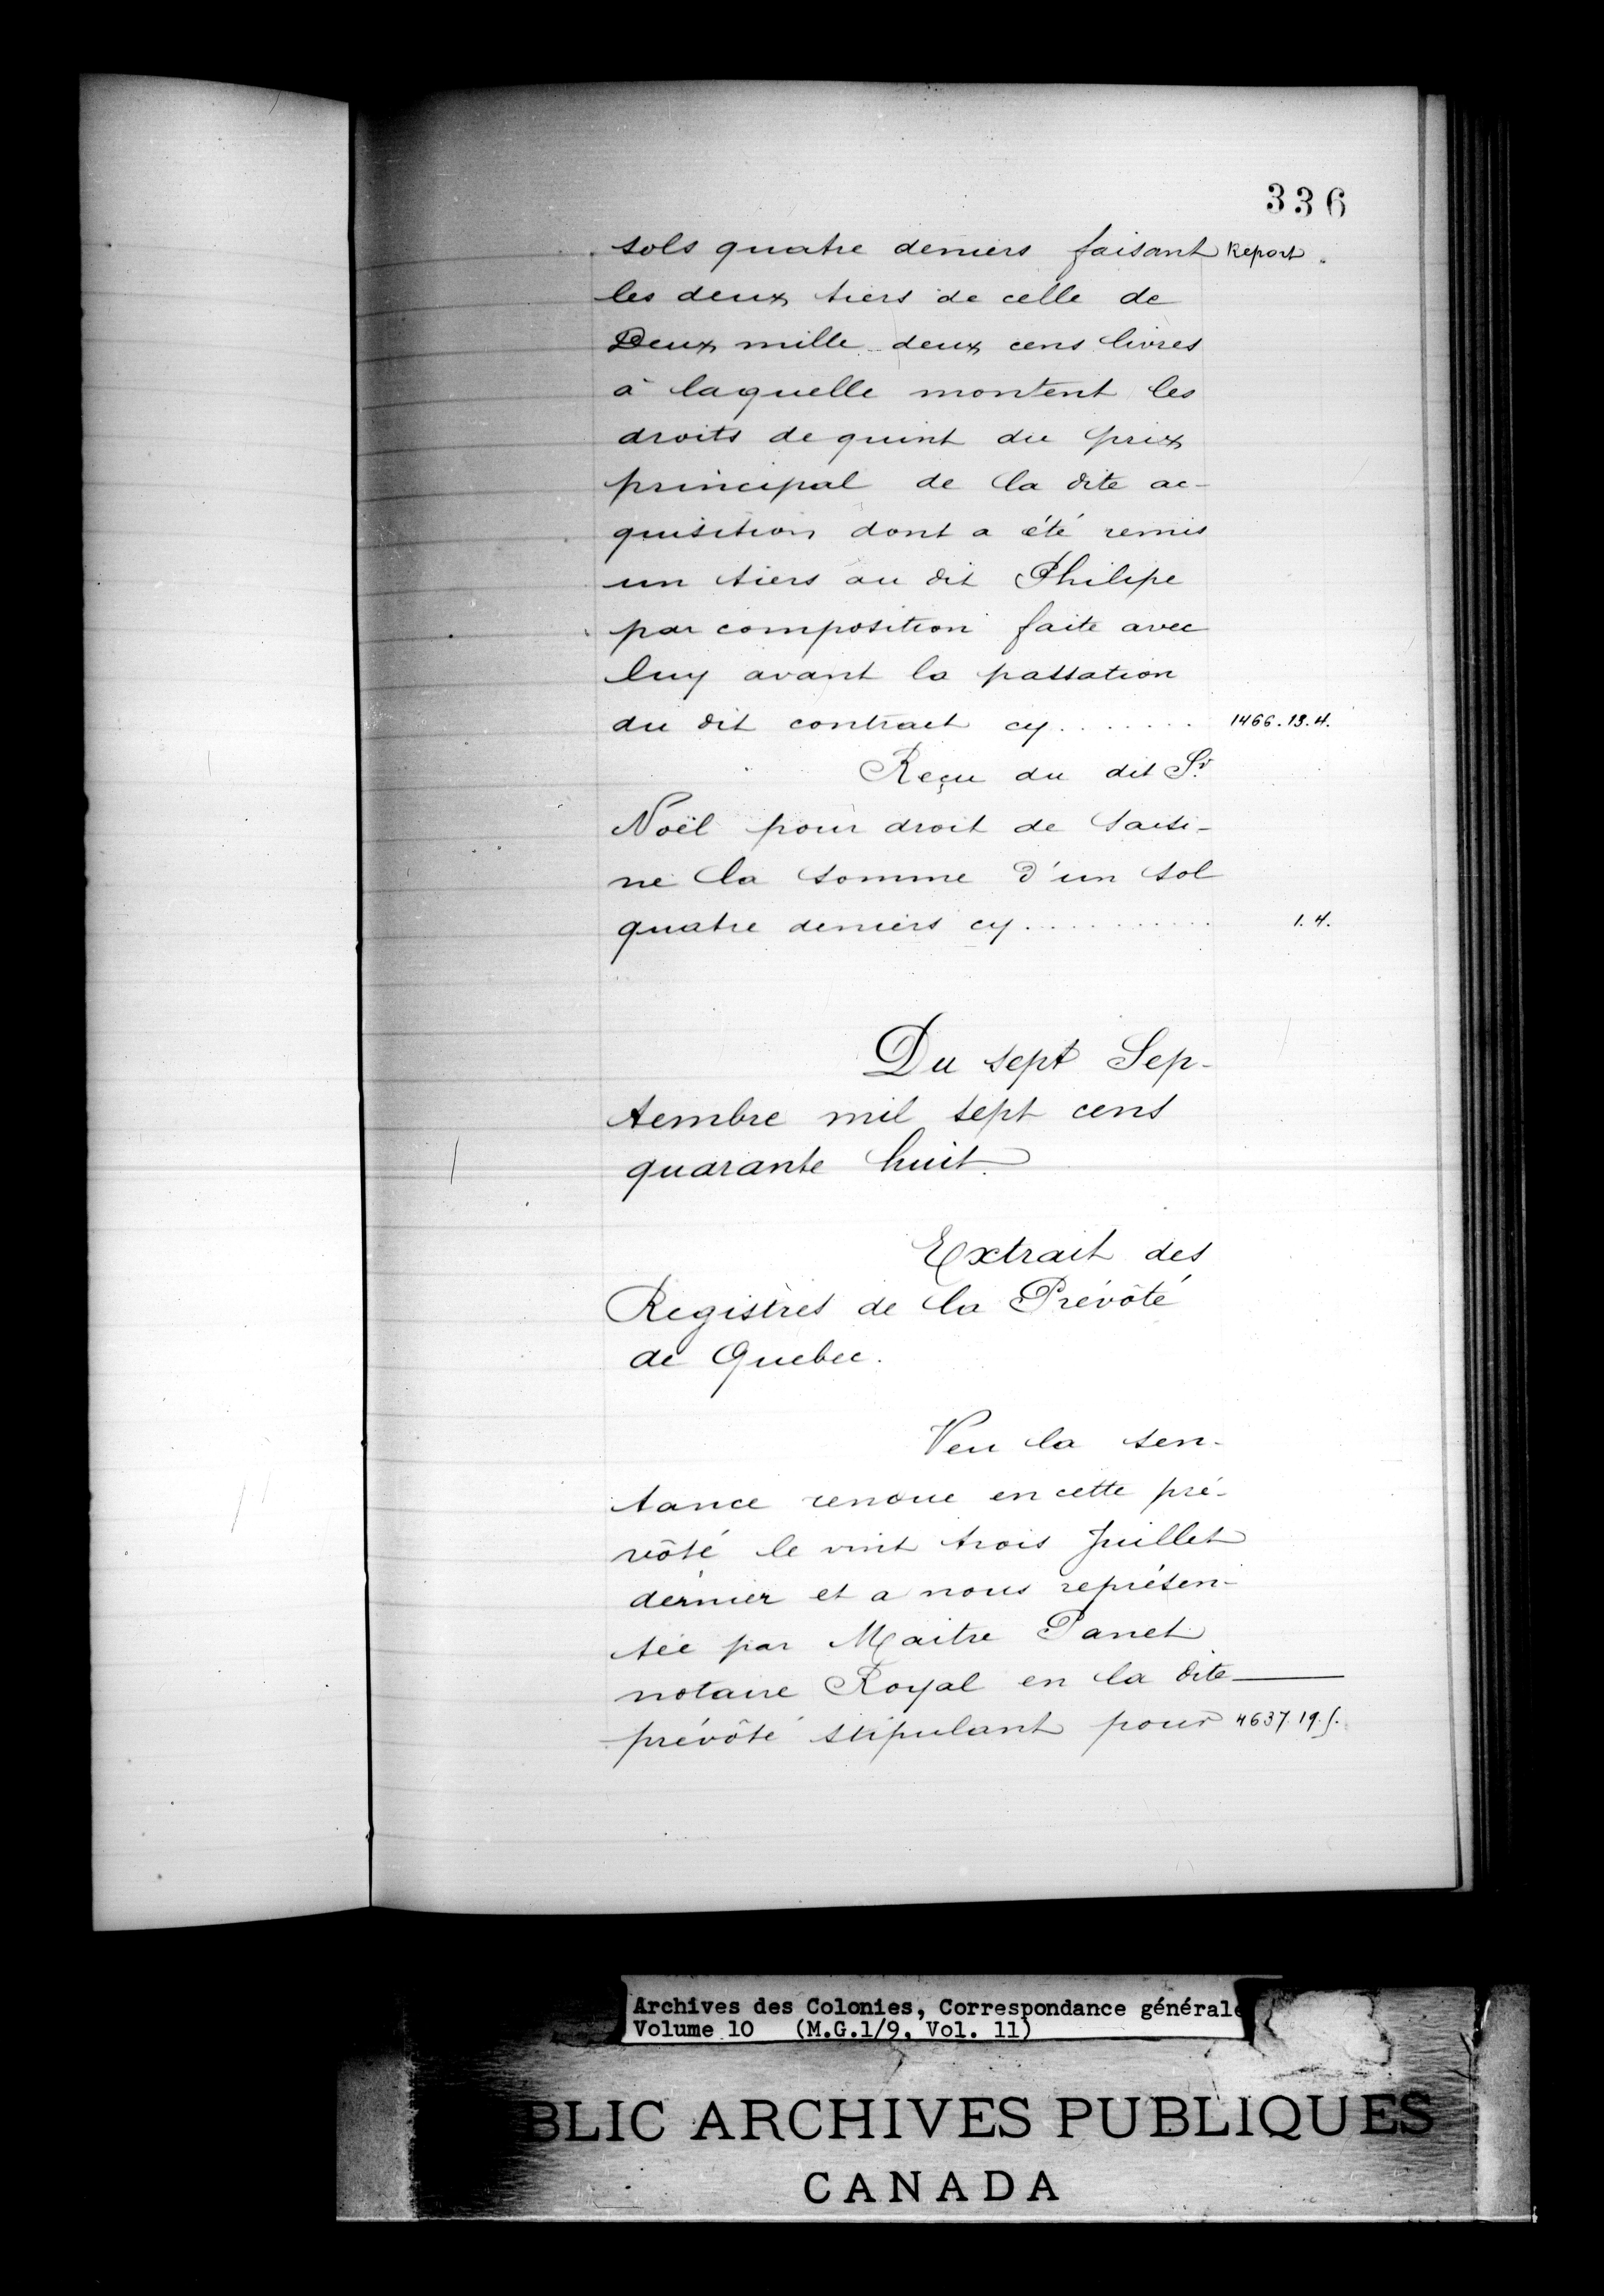 336
sols quatre deniers faisant Report.
les deux tiers de celle de
Deux mille deux cens livres
à laquelle montent les
droits de quint du prix
principal de la dite ac-
quisition dont a été remis
un tiers au dit Philipe
par composition faite avec
luy avant la passation
du dit contract cy ....... 1466.13.4.
Reçu du dit Sr
Noël pour droit de saisi-
ne la somme d'un sol
quatre deniers cy .......... 1.4.
Du sept Sep-
tembre mil sept cens
quarante huit.
Extrait des
Registres de la Prévôté
de Quebec.
Veu la sen-
tance rendue en cette pré-
vôté le vint trois Juillet
dernier et a nous représen-
tée par Maitre Panet
notaire Royal en la dite
prévôté stipulant pour 4637.19.
Archives des Colonies, Correspondance générale
Volume 10 (M.G.1/9, Vol. 11)
BLIC ARCHIVES PUBLIQUES
CANADA